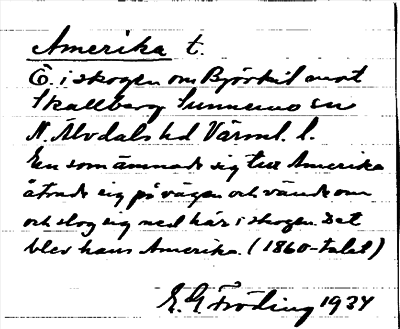 Amerika t.
Ö. i skogen om Björkil mot
Skallberg Sunnemo sn
N. Älvdals hd Värml. l.
En som ämnade sig till Amerika
ångrade sig på vägen och vände om
och slog sig ned här i skogen. Det
blev hans Amerika. (1860-talet)
E. G. Fröding 1934